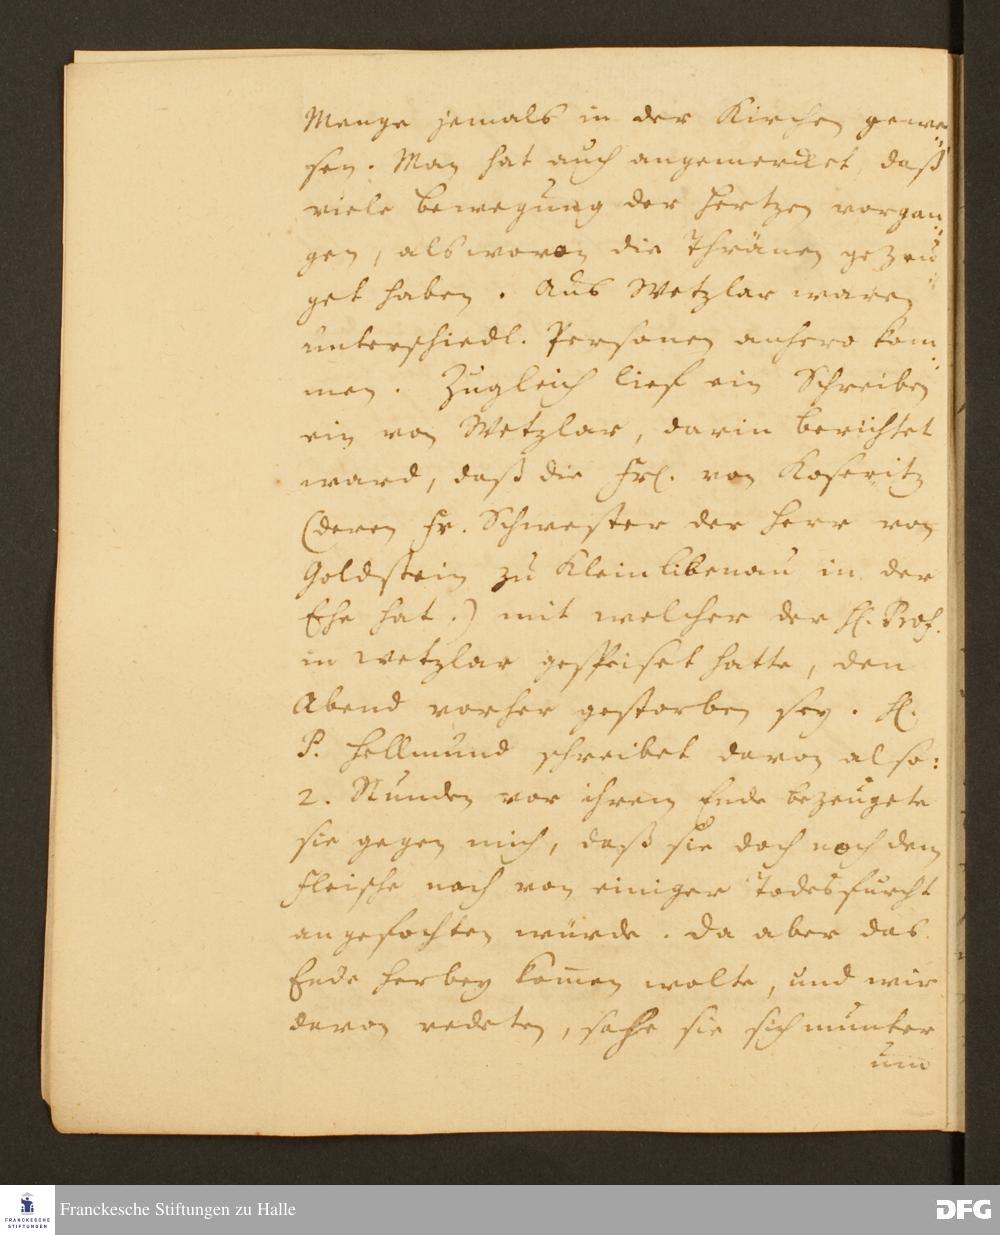 Menge jemals in der Kirchen gewe-
sen. Man hat auch angemercket, daß
viele bewegung der Hertzen vorgan-
gen, als wovon die Thränen gezeu-
get haben. Aus Wetzlar waren
unterschiedl. Personen anhero kom-
men. Zugleich lief ein Schreiben
ein von Wetzlar, darin berichtet
ward, daß die Frl. von Koseritz
(deren Fr. Schwester der Herr von
Goldstein zu Kleinlibenau in der
Ehe hat.) mit welcher der H. Prof.
in Wetzlar gespeiset hatte, den
Abend vorher gestorben sey. H.
P. Hellmund schreibet davon also:
2. Stunden vor ihrem Ende bezeugete
sie gegen mich, daß sie doch noch dem
Fleische nach von einiger Todesfurcht
angefochten würde. Da aber das
Ende herbey kom̅en wolte, und wir
davon redeten, sahe sie sich munter
um
Franckesche Stiftungen zu Halle
FRANCKESCHE
STIFTUNGEN
DFG